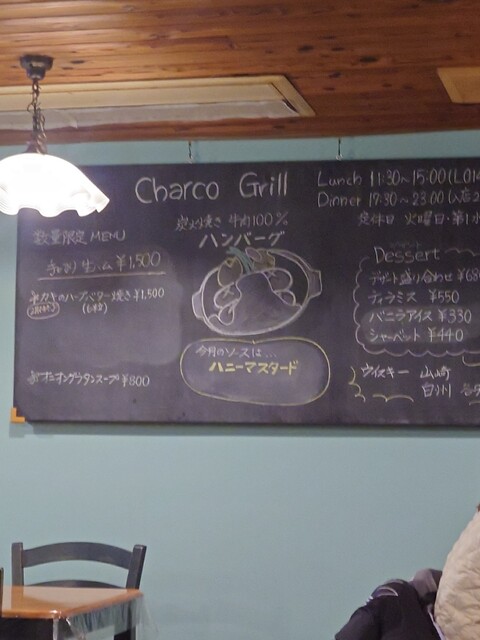 Charco Grill
Lunch 11:30~15:00(L.O14
Dinner 17:30~23:00(入店2
定休日 火曜日・第1水
炭火焼き 牛肉100%
ハンバーグ
数量限定 MENU
生ハム ¥1,500
カキのハーブバター焼き ¥1,500
オニオングラタンスープ ¥800
今月のソースは...
ハニーマスタード
Dessert
デザート盛り合わせ ¥680
ティラミス ¥550
バニラアイス ¥330
シャーベット ¥440
ウイスキー 山崎
白州